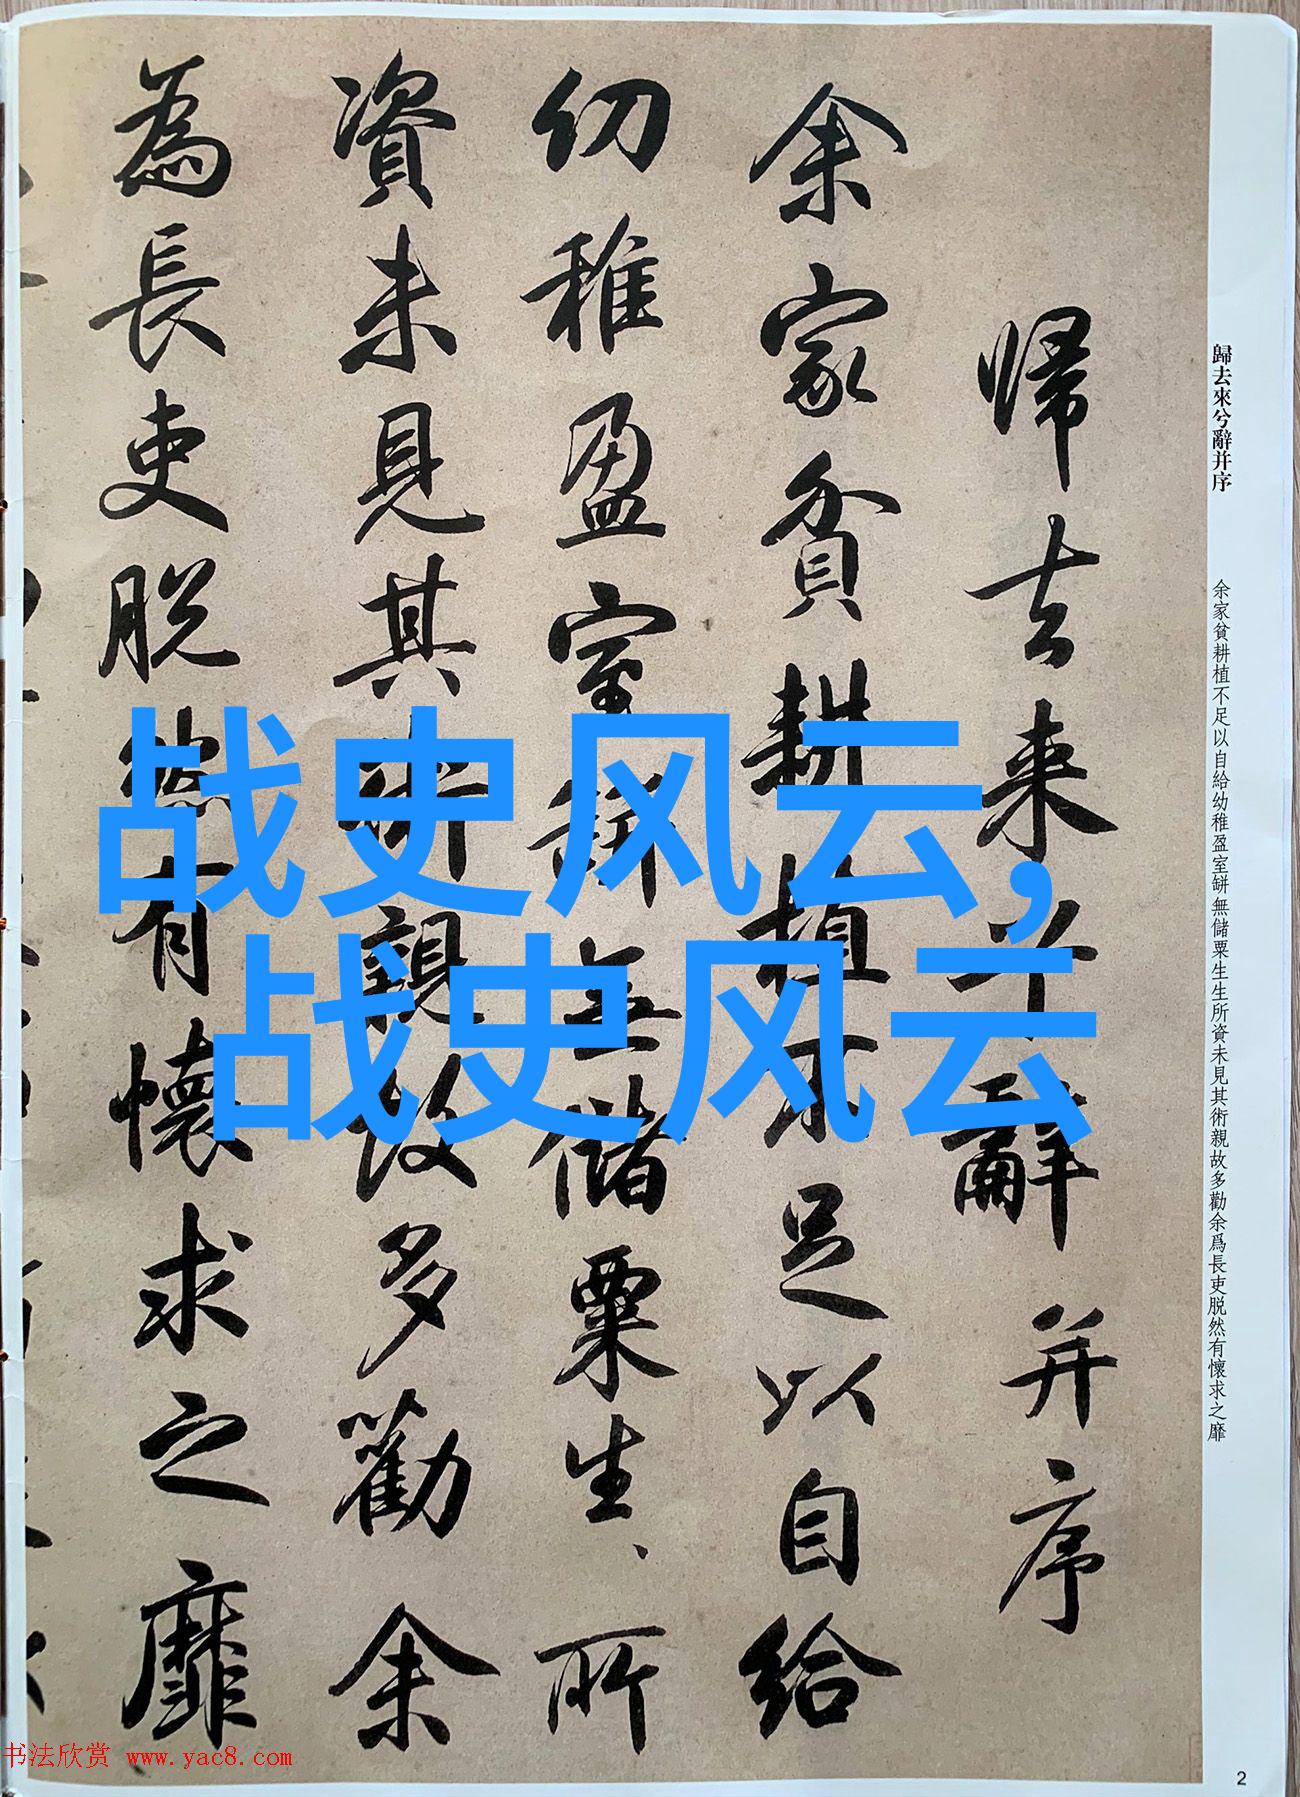 歸去來兮辭并序
余家貧耕植不足以自給幼稚盈室缾無儲粟生生所資未見其術親故多勸余爲長吏脱然有懷求之靡
帰去来兮辭并序
余家貧耕植不足以自給
幼稚盈室缾無儲粟生、所
資未見其術親故多勸余
為長吏脱然有懷求之靡
战史风云,
战史风云
书法欣赏 www.yac8.com
2